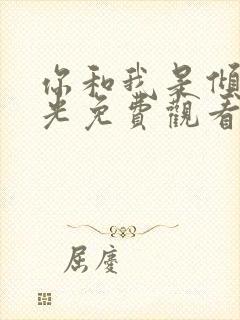 你和我是傾
光免費觀看
屈慶